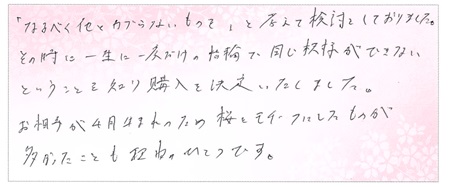 「なるべく他とカブらないものを」と考えて検討しておりました。
その時に一生に一度だけの指輪で同じ模様ができない
ということを知り購入を決定いたしました。
お相手が4月生まれのため桜をモチーフにしたものが
多かったことも理由のひとつです。